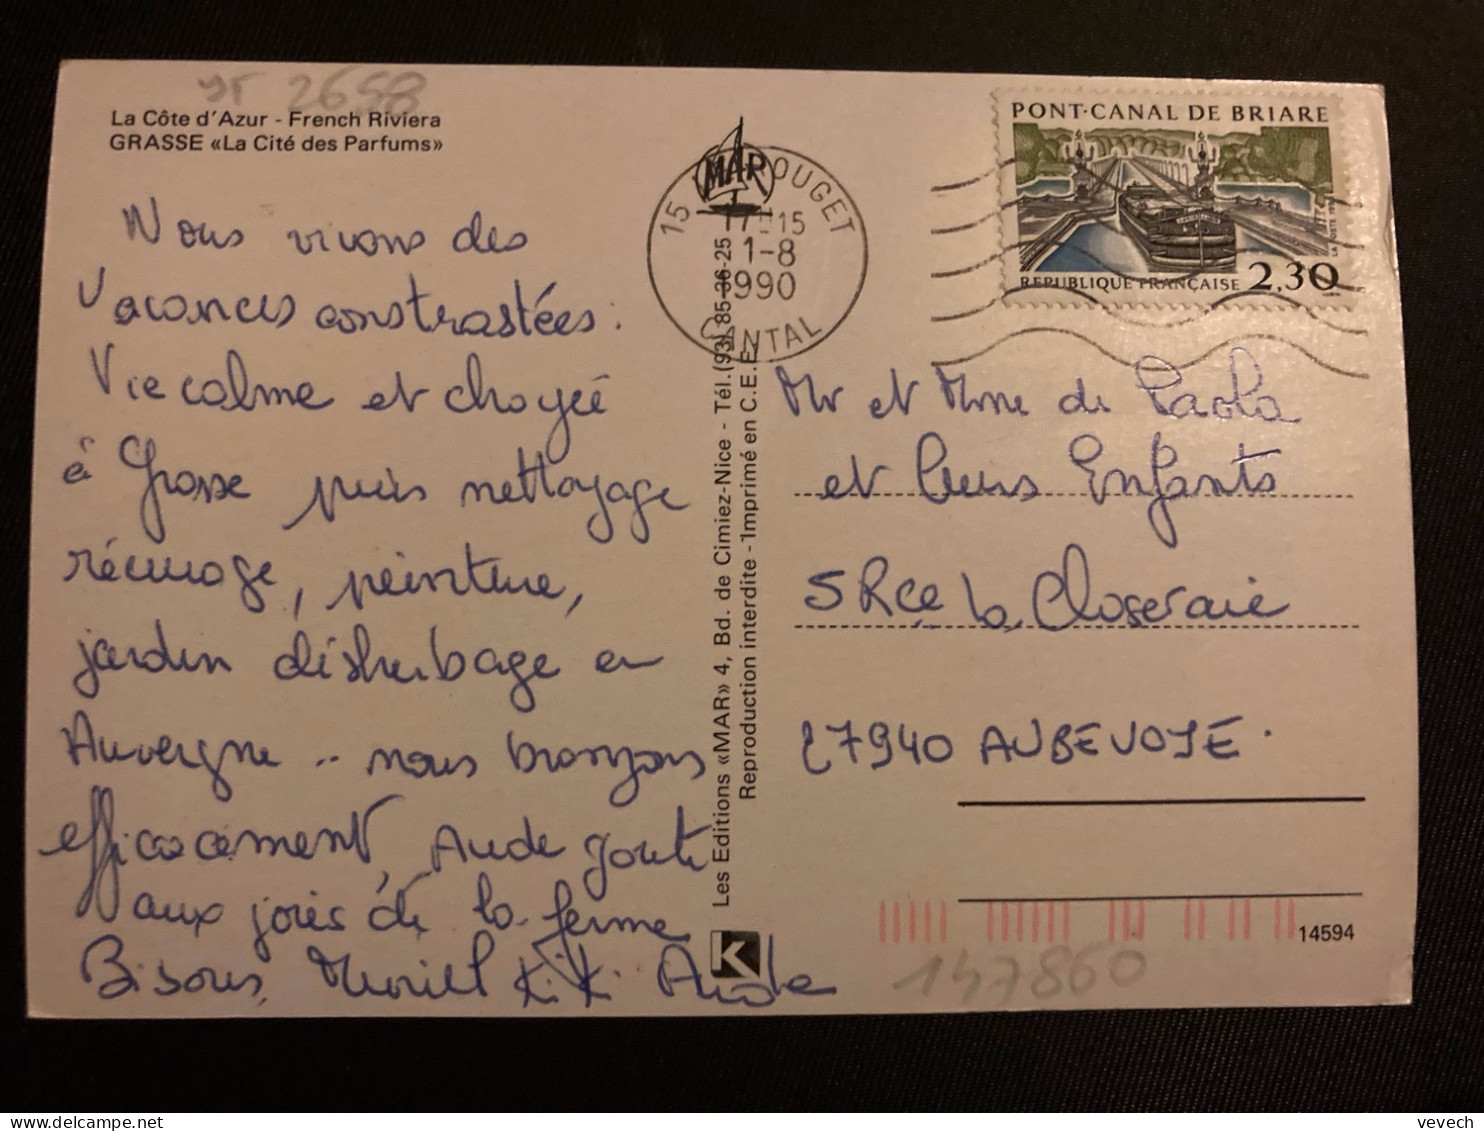 YT 2658
La Côte d'Azur - French Riviera
GRASSE «La Cité des Parfums»
Nous vivons des
Vacances constrastées.
Vie calme et choyée
à Grasse puis nettoyage
récurage, peinture,
jardin désherbage en
Auvergne .. nous bronzons
efficacement, Aude goute
aux joies de la ferme
Bisous, Muriel Kiki Aude
Les Editions «MAR» 4, Bd. de Cimiez-Nice - Tél.(93) 85-36-25
Reproduction interdite - Imprimé en C.E.E.
MAR
K
15 OUGET
17H15
1-8
1990
CANTAL
PONT-CANAL DE BRIARE
LA POSTE 1990
REPUBLIQUE FRANÇAISE 2,30
Mr et Mme de Paola
et leurs Enfants
5 Rce la Closeraie
27940 AUBEVOYE.
14594
147860
vevech